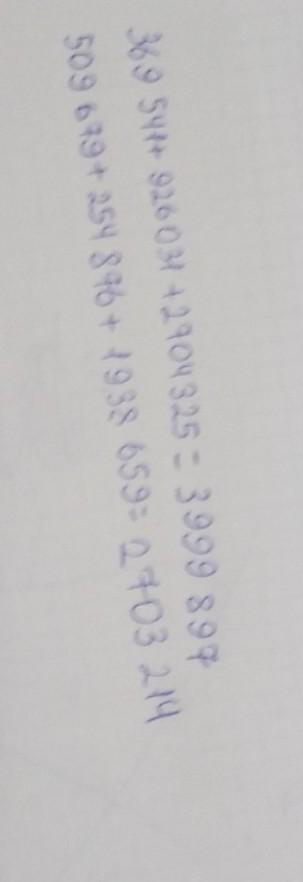 369 541+ 926 031 + 2704 325 = 3 999 897
509 679 + 254 876 + 1938 659 = 2 703 214